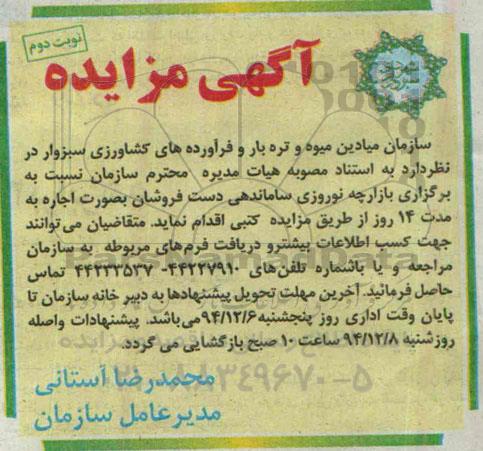 نوبت دوم
آگهی مزایده
سازمان میادین میوه و تره بار و فرآورده های کشاورزی سبزوار در
نظردارد به استناد مصوبه هیات مدیره محترم سازمان نسبت به
برگزاری بازارچه نوروزی ساماندهی دست فروشان بصورت اجاره به
مدت ۱۴ روز از طریق مزایده کتبی اقدام نماید. متقاضیان می‌توانند
جهت کسب اطلاعات بیشترو دریافت فرم‌های مربوطه به سازمان
مراجعه و یا باشماره تلفن‌های ۴۴۲۲۷۹۱۰- ۴۴۲۳۳۵۳۷ تماس
حاصل فرمائید. آخرین مهلت تحویل پیشنهادها به دبیر خانه سازمان تا
پایان وقت اداری روز پنجشنبه۹۴/۱۲/۶می‌باشد. پیشنهادات واصله
روزشنبه ۹۴/۱۲/۸ ساعت ۱۰ صبح بازگشایی می گردد.
محمدرضا آستانی
مدیرعامل سازمان